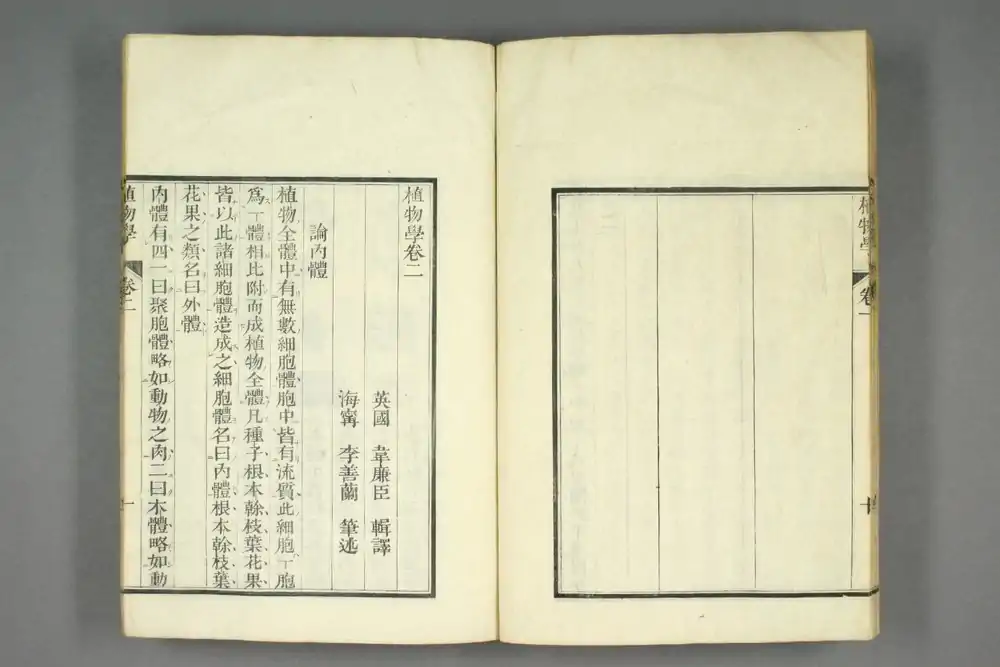 植物學 卷一 十
植物學卷二
英國 韋廉臣 輯譯
海寧 李善蘭 筆述
論內體
植物全體中有無數細胞體胞中皆有流質此細胞丅胞
爲丅體相比附而成植物全體凡種子根本榦枝葉花果
皆以此諸細胞體造成之細胞體名曰內體根本榦枝葉
花果之類名曰外體
內體有四一曰聚胞體略如動物之肉二曰木體略如動
植物學 卷二 一